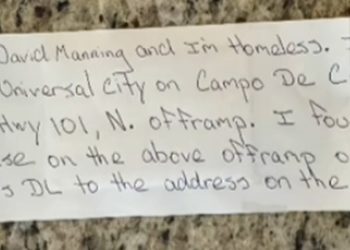 David Manning and I'm Homeless.
Universal City on Campo De C
Hwy 101, N. offramp. I fou
se on the above offramp o
s DL to the address on the